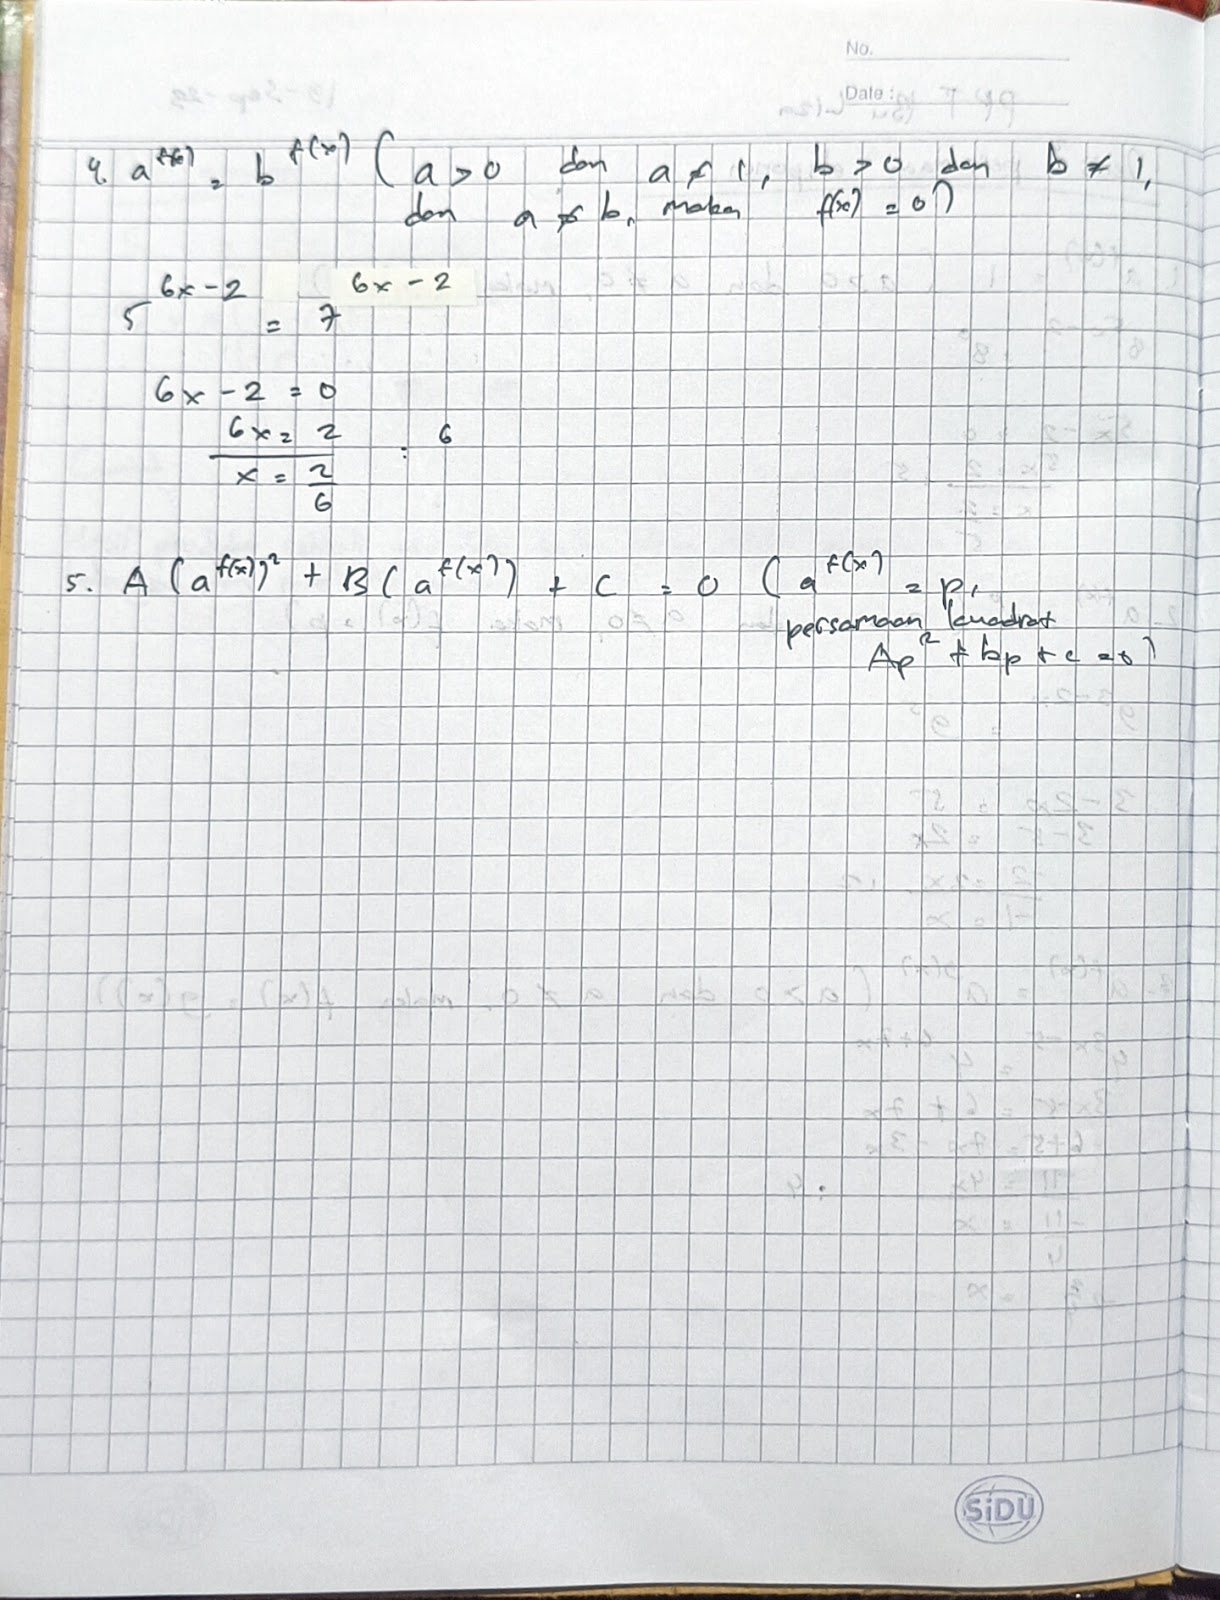 No.
Date :
4. a^f(x) = b^f(x) ( a > 0 dan a ≠ 1, b > 0 dan b ≠ 1,
dan a ≠ b, maka f(x) = 0)
5^6x - 2 = 7^6x - 2
6x - 2 = 0
6x = 2 : 6
x = 2/6
5. A (a^f(x))² + B (a^f(x)) + C = 0 (a^f(x) = p,
persamaan kuadrat
Ap² + bp + c = 0)
SiDU